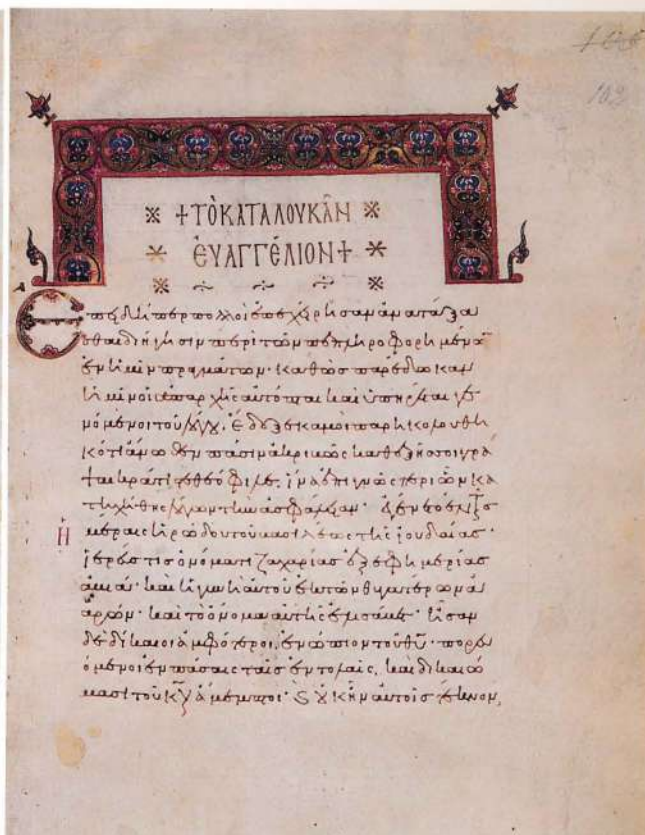 105
102
+ΤὸΚΑΤΑΛΟΥΚᾶΝ
ἐΥΑΓΓέΛΙΟΝ+
Ἐπειδήπερ πολλοὶ ἐπεχείρησαν ἀνατάξα
σθαι διήγησιν περὶ τῶν πεπληροφορημένων
ἐν ἡμῖν πραγμάτων· καθὼς παρέδωκαν
ἡμῖν οἱ ἀπαρχῆς αὐτόπται καὶ ὑπηρέται γε
νόμενοι τοῦ λόγου· ἔδοξε κἀμοὶ παρηκολουθη
κότι ἄνωθεν πᾶσιν ἀκριβῶς καθεξῆς σοι γρά
ψαι κράτιστε θεόφιλε, ἵνα ἐπιγνῷς περὶ ὧν κα
τηχήθης λόγων τὴν ἀσφάλειαν· ἐγένετο ἐν ταῖς
ἡμέραις ἡρώδου τοῦ βασιλέως τῆς ἰουδαίας·
ἱερεύς τις ὀνόματι ζαχαρίας ἐξ ἐφημερίας
ἀβιά· καὶ ἡ γυνὴ αὐτοῦ ἐκ τῶν θυγατέρων ἀ
αρών· καὶ τὸ ὄνομα αὐτῆς ἐλισάβετ· ἦσαν
δὲ δίκαιοι ἀμφότεροι ἐνώπιον τοῦ θῦ· πορευ
όμενοι ἐν πάσαις ταῖς ἐντολαῖς, καὶ δικαιώ
μασι τοῦ κῦ ἄμεμπτοι· καὶ οὐκ ἦν αὐτοῖς τέκνον,